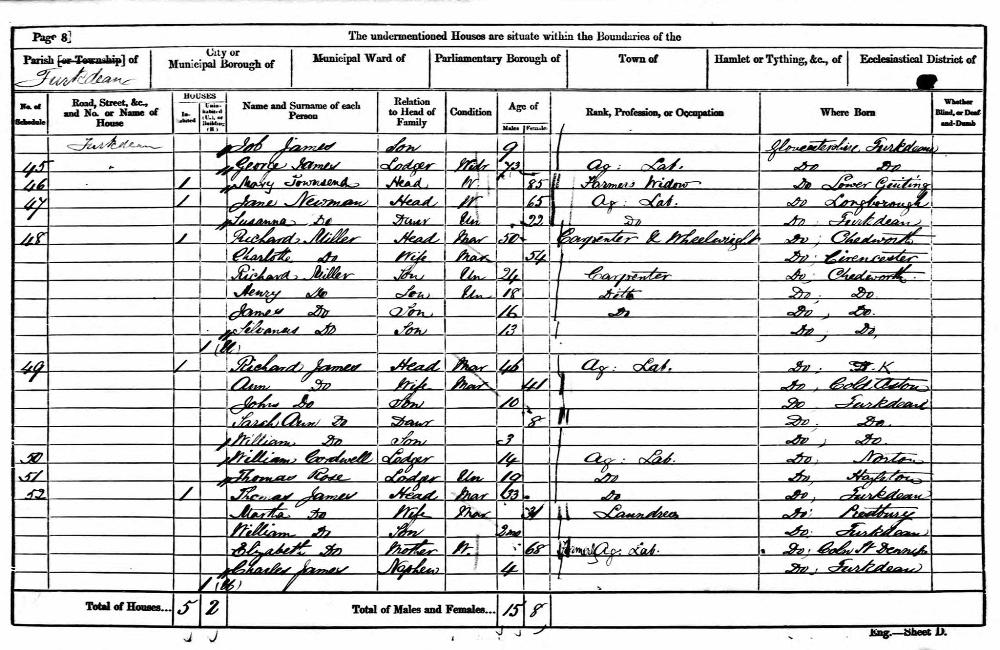 Page 8] The undermentioned Houses are situate within the Boundaries of the
Parish [or Township] of City or Municipal Borough of Municipal Ward of Parliamentary Borough of Town of Hamlet or Tything, &c., of Ecclesiastical District of
Turkdean
No. of Schedule Road, Street, &c., and No. or Name of House HOUSES In-habited Unin-habited (U.), or Building (B.) Name and Surname of each Person Relation to Head of Family Condition Age of Males Females Rank, Profession, or Occupation Where Born Whether Blind, or Deaf-and-Dumb
Turkdean Job James Son 9 Gloucestershire Turkdean
45 " George James Lodger Widr 73 Ag: Lab. Do Do
46 1 Mary Townsend Head W. 85 Farmers Widow Do Lower Guiting
47 1 Jane Newman Head W 65 Ag: Lab. Do Longborough
Susanna Do Daur Un 22 Do Do: Turkdean
48 1 Richard Miller Head Mar 50 Carpenter & Wheelwright Do; Chedworth
Charlotte Do Wife Mar 54 Do: Cirencester
Richard Miller Son Un 24 Carpenter Do; Chedworth
Henry Do Son Un 18 Ditto Do; Do.
James Do Son 16 Do Do, Do.
Silvanus Do Son 13 Do; Do,
1 (U)
49 1 Richard James Head Mar 46 Ag: Lab. Do: K
Ann Do Wife Mar 41 Do, Cold Aston
John Do Son 10 Do Turkdean
Sarah Ann Do Daur 8 Do: Do.
William Do Son 3 Do, Do.
50 William Cordwell Lodger 14 Ag: Lab. Do, Norton
51 Thomas Rose Lodger Un 19 Do Do,
52 1 Thomas James Head Mar 33 Do Do, Turkdean
Martha Do Wife Mar 31 Laundress Do: Prestbury
William Do Son 2mo Do: Turkdean
Elizabeth Do Mother W. 68 Ag: Lab. Do; Coln St Dennis
Charles James Nephew 4 Do; Turkdean
1 (U)
Total of Houses... 5 2 Total of Males and Females... 15 8
Eng.—Sheet D.